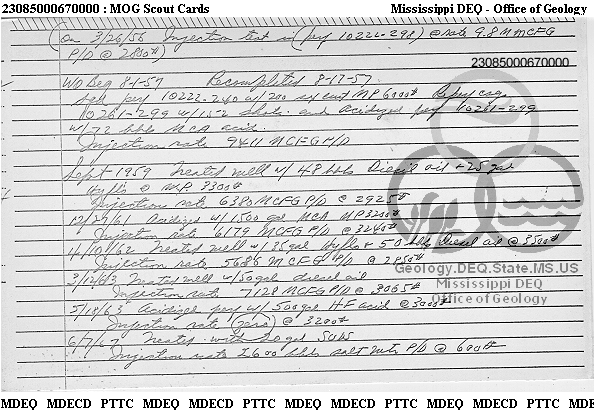 23085000670000 : MOG Scout Cards Mississippi DEQ - Office of Geology
(On 3/26/56 Injection test in (perf 10222-298) @ rate 9.8 MMCFG
P/D @ 2850#)
23085000670000
WO Beg 8-1-57 Recompleted 8-17-57
sqz perf 10222-240 w/200 sx cmt MP 6000# Reperf csg
10261-299 w/152 shots and Acidized perf 10261-299
w/72 bbls MCA acid.
Injection rate 9411 MCFG P/D
Sept 1959 Treated well w/ 48 bbls Diesel oil + 25 gal
Hyflo @ MP 3300#
Injection rate 6380 MCFG P/D @ 2925#
12/29/61 Acidize w/1500 gal MCA MP 3200#
Injection rate 6179 MCFG P/D @ 3240#
11/10/62 Treated well w/ gal Hyflo + 50 bbls Diesel oil @ 3500#
Injection rate 5686 MCFG P/D @ 2850#
3/12/63 Treated well w/50 gal diesel oil
Injection rate 7128 MCFG P/D @ 3065#
5/18/63 Acidized perf w/500 gal HF acid @ 3000#
Injection rate (zero) @ 3200#
6/7/67 Treated with 20 gal
Injection rate 2600 bbls salt wtr P/D @ 600#
Geology.DEQ.State.MS.US
Mississippi DEQ
Office of Geology
MDEQ MDECD PTTC MDEQ MDECD PTTC MDEQ MDECD PTTC MDEQ MDECD